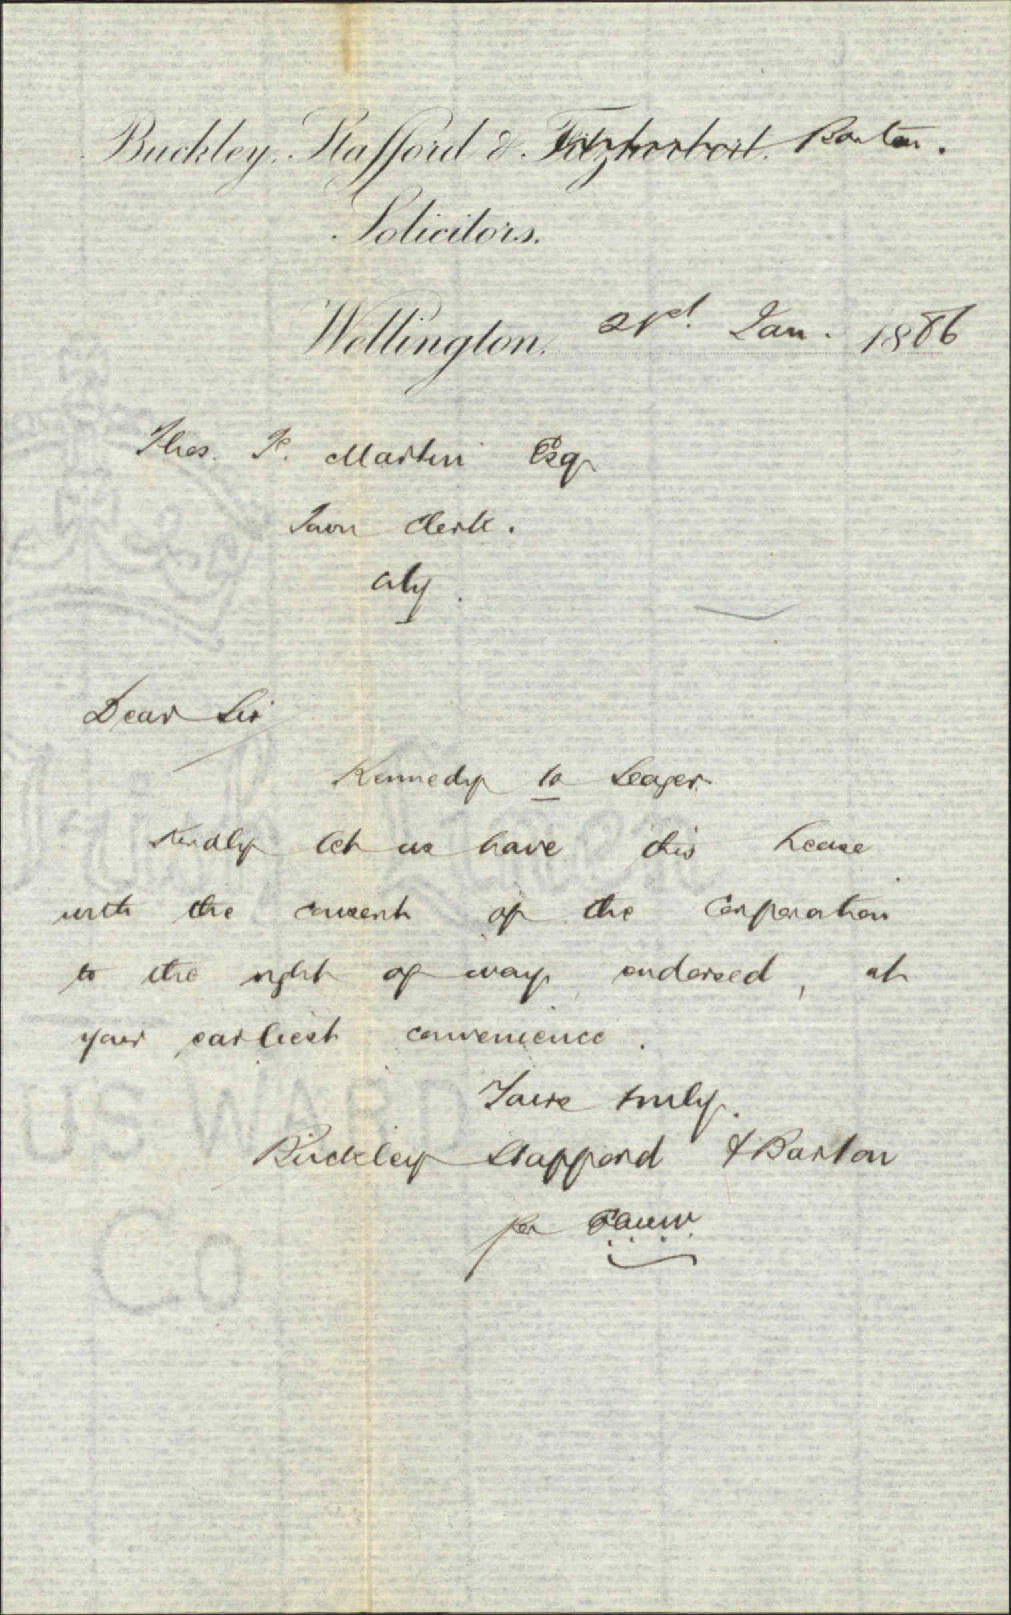 Buckley, Stafford & Fitzherbert. Barton.
Solicitors.
Wellington. Jan. 1886
Thos. F. Martin Esq
Town Clerk.
City.
Dear Sir
Kennedy to Seager
Kindly let us have this Lease
with the consent of the Corporation
to the right of way endorsed, at
your earliest convenience.
Yours truly.
Buckley Stafford & Barton
per
Irish Linen
US WARD
Co